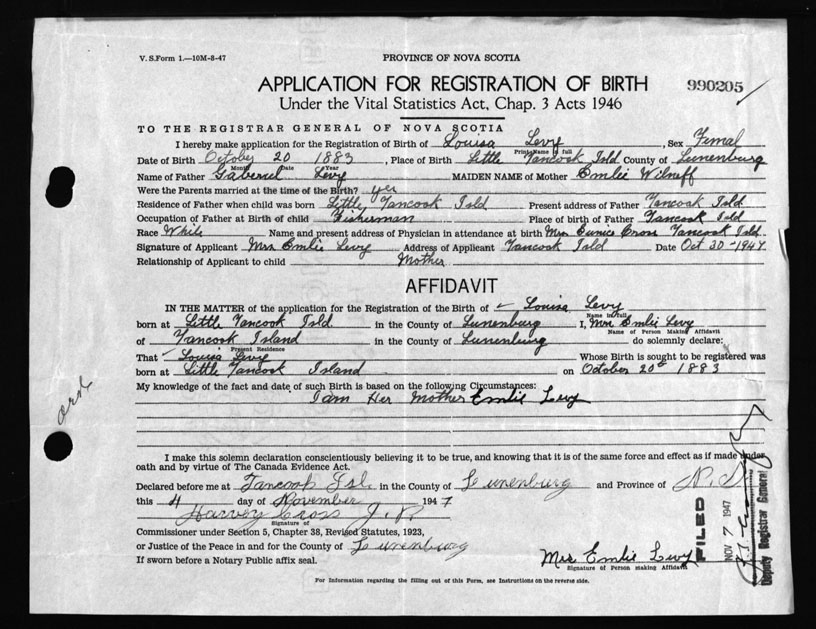 V. S.Form 1.—10M-8-47
PROVINCE OF NOVA SCOTIA
990205
APPLICATION FOR REGISTRATION OF BIRTH
Under the Vital Statistics Act, Chap. 3 Acts 1946
TO THE REGISTRAR GENERAL OF NOVA SCOTIA
I hereby make application for the Registration of Birth of Louisa Levy, Sex Femal
Print Name in full
Date of Birth October 20 1883, Place of Birth Little Tancook Isld County of Lunenburg
Month Date Year
Name of Father Gaberiel Levy MAIDEN NAME of Mother Emlie Wilneff
Were the Parents married at the time of the Birth? yes
Residence of Father when child was born Little Tancook Isld Present address of Father Tancook Isld
Occupation of Father at Birth of child Fisherman Place of birth of Father Tancook Isld
Race White Name and present address of Physician in attendance at birth Mrs Eunice Cross Tancook Isld
Signature of Applicant Mrs Emlie Levy Address of Applicant Tancook Isld Date Oct 30-1947
Relationship of Applicant to child Mother
AFFIDAVIT
IN THE MATTER of the application for the Registration of the Birth of Louisa Levy
Name in full
born at Little Tancook Isld. in the County of Lunenburg I, Mrs Emlie Levy
Name of Person Making Affidavit
of Tancook Island in the County of Lunenburg do solemnly declare:
Present Residence
That Louisa Levy Whose Birth is sought to be registered was
born at Little Tancook Island on October 20th 1883
My knowledge of the fact and date of such Birth is based on the following Circumstances:
I am Her Mother Emlie Levy
I make this solemn declaration conscientiously believing it to be true, and knowing that it is of the same force and effect as if made under
oath and by virtue of The Canada Evidence Act.
Declared before me at Tancook Isl. in the County of Lunenburg and Province of N. S.
this 4 day of November 1947
Harvey Cross J. P.
Signature of
Commissioner under Section 5, Chapter 38, Revised Statutes, 1923,
or Justice of the Peace in and for the County of Lunenburg
If sworn before a Notary Public affix seal.
Mrs Emlie Levy
Signature of Person making Affidavit
For Information regarding the filling out of this Form, see Instructions on the reverse side.
FILED
NOV 7 1947
Deputy Registrar General